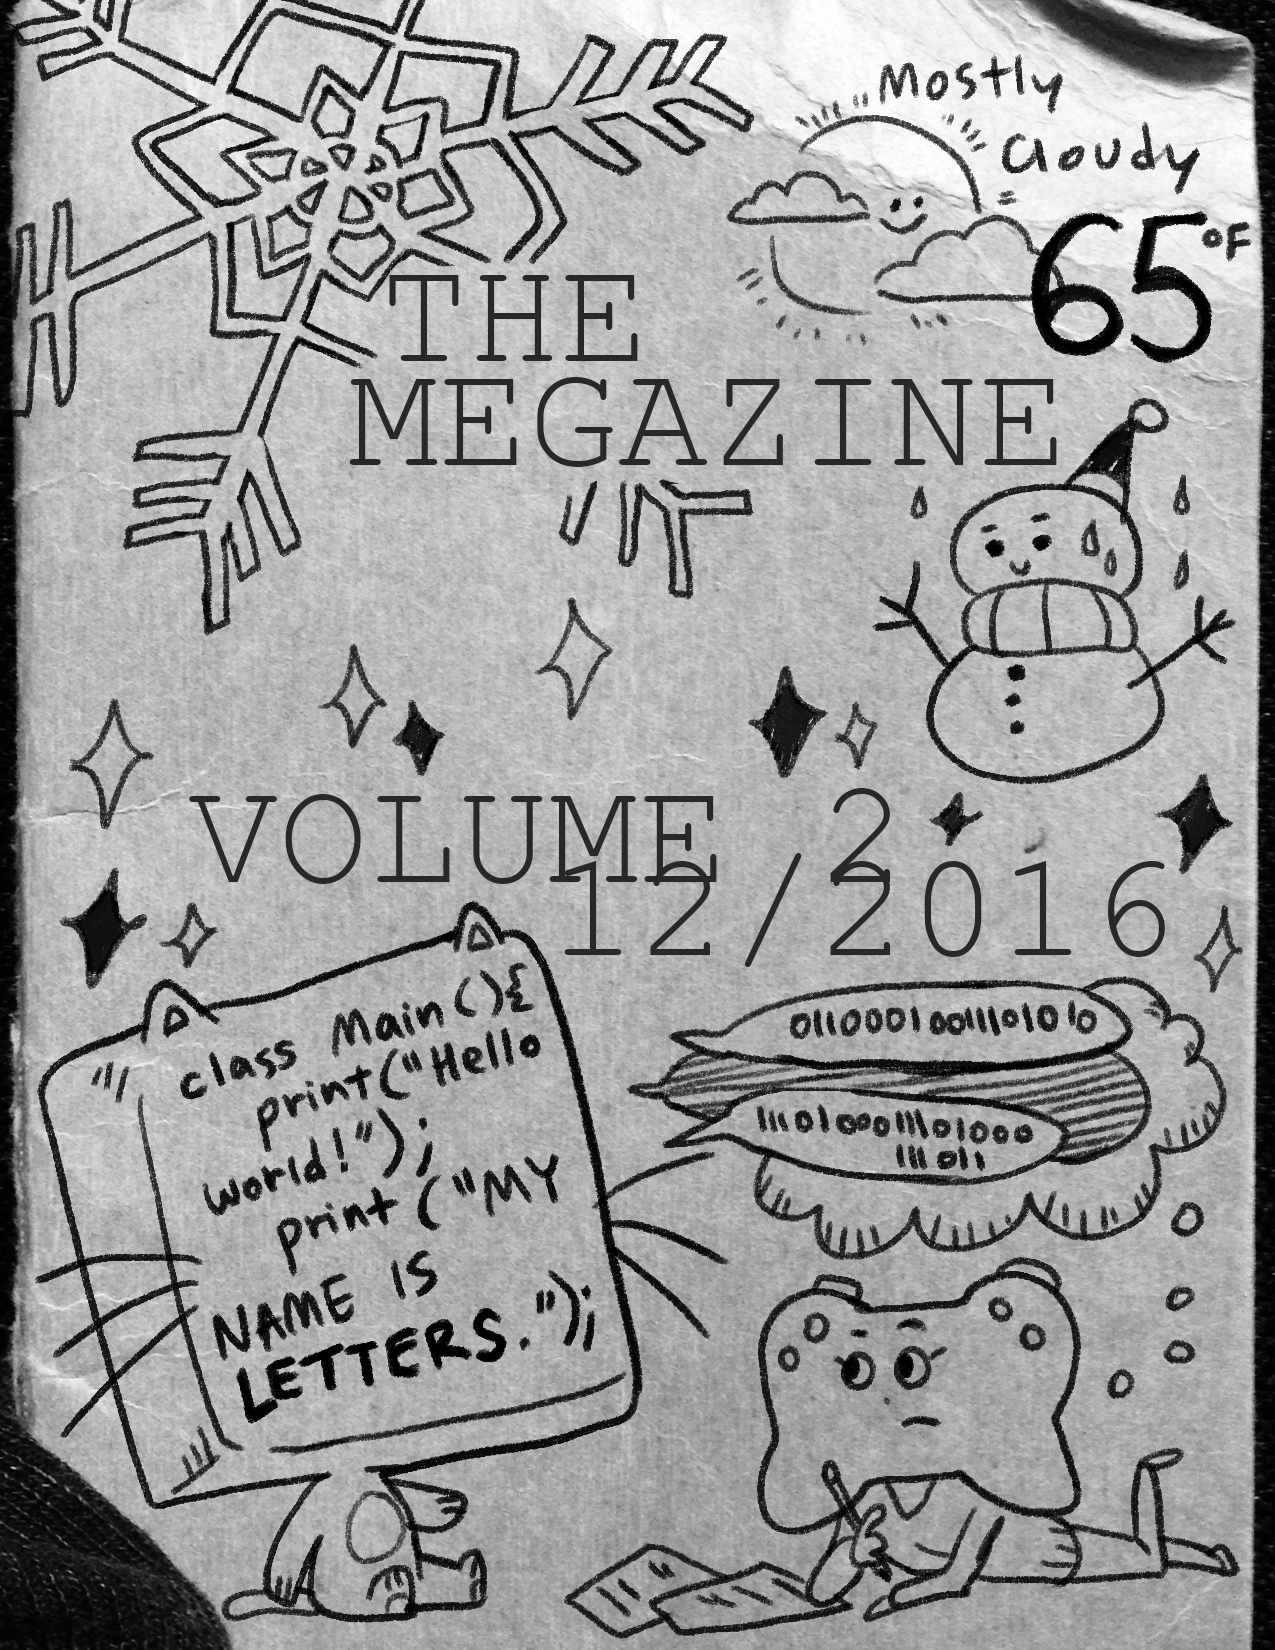 Mostly
Cloudy
65°F
THE
MEGAZINE
VOLUME 2
12/2016
class Main(){
print("Hello
world!");
print("MY
NAME IS
LETTERS.");
01100010011101010
11101000011101000
111011